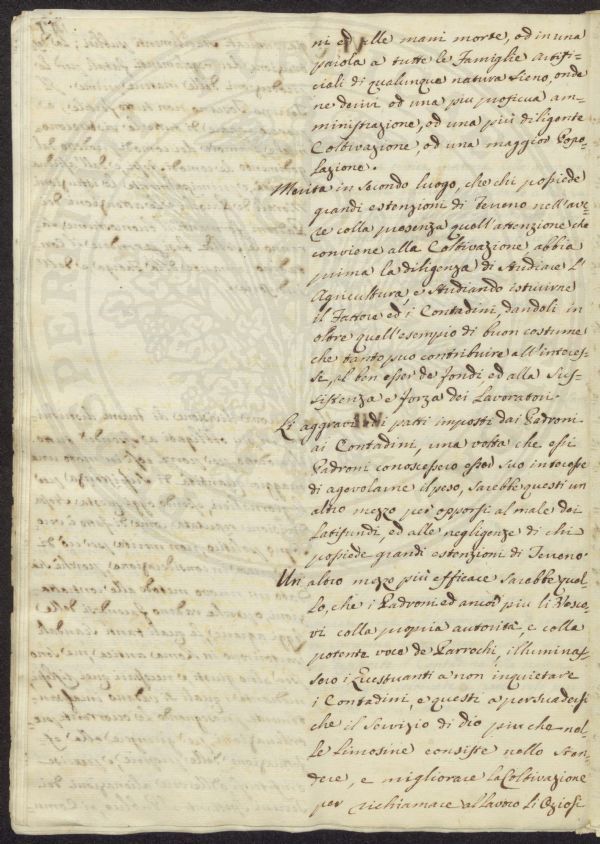 ni ed alle mani morte, od in una
parola a tutte le Famiglie artifi=
ciali di qualunque natura sieno, onde
ne derivi od una piu proficua am=
ministrazione, od una più diligente
Coltivazione, od una maggior Popo=
lazione.
Merita in secondo luogo, che chi possiede
grandi estenzioni di Terreno nell'ave=
re colla presenza quell'attenzione che
conviene alla Coltivazione abbia
prima la diligenza di studiare l'
Agricultura, e studiando istruirne
il Fattore ed i Contadini, dandoli in
oltre quell'esempio di buon costume
che tanto puo contribuire all'interes=
se, al ben esser de fondi, ed alla sus=
sistenza e forza dei Lavoratori.
Li aggravi di patti imposti dai Padroni
ai Contadini, una volta che essi
Padroni conoscessero esser suo interesse
di agevolarne il peso, sarebbe questi un
altro mezzo per opporsi al male dei
Latifundi, ed alle negligenze di chi
possiede grandi estenzioni di Terreno.
Un altro mezzo più efficace sarebbe quel=
lo, che i Padroni ed ancor piu li Vesco=
vi colla propria autorità, e colla
potente voce de Parrochi, illuminas=
sero i Questuanti a non inquietare
i Contadini, e questi a persuadersi
che il servizio di Dio piu che nel=
le limosine consiste nello sten=
dere, e migliorare la Coltivazione
per richiamare al lavoro li Oziosi